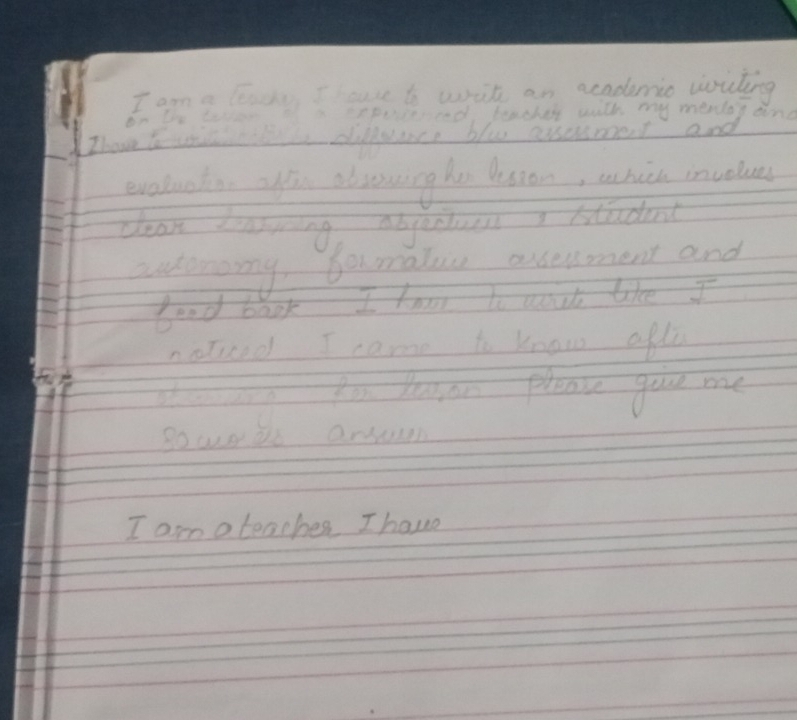 I am a teacher, I have to write an academic writing
on the lesson of a experienced teacher with my mentor and
I have to write difference b/w assessment and
evaluation after observing her lesson, which involves
clear learning objectives, student
autonomy, formative assessment and
feed back I have to write like I
noticed I came to know after
observing her lesson please give me
answer
I am a teacher I have